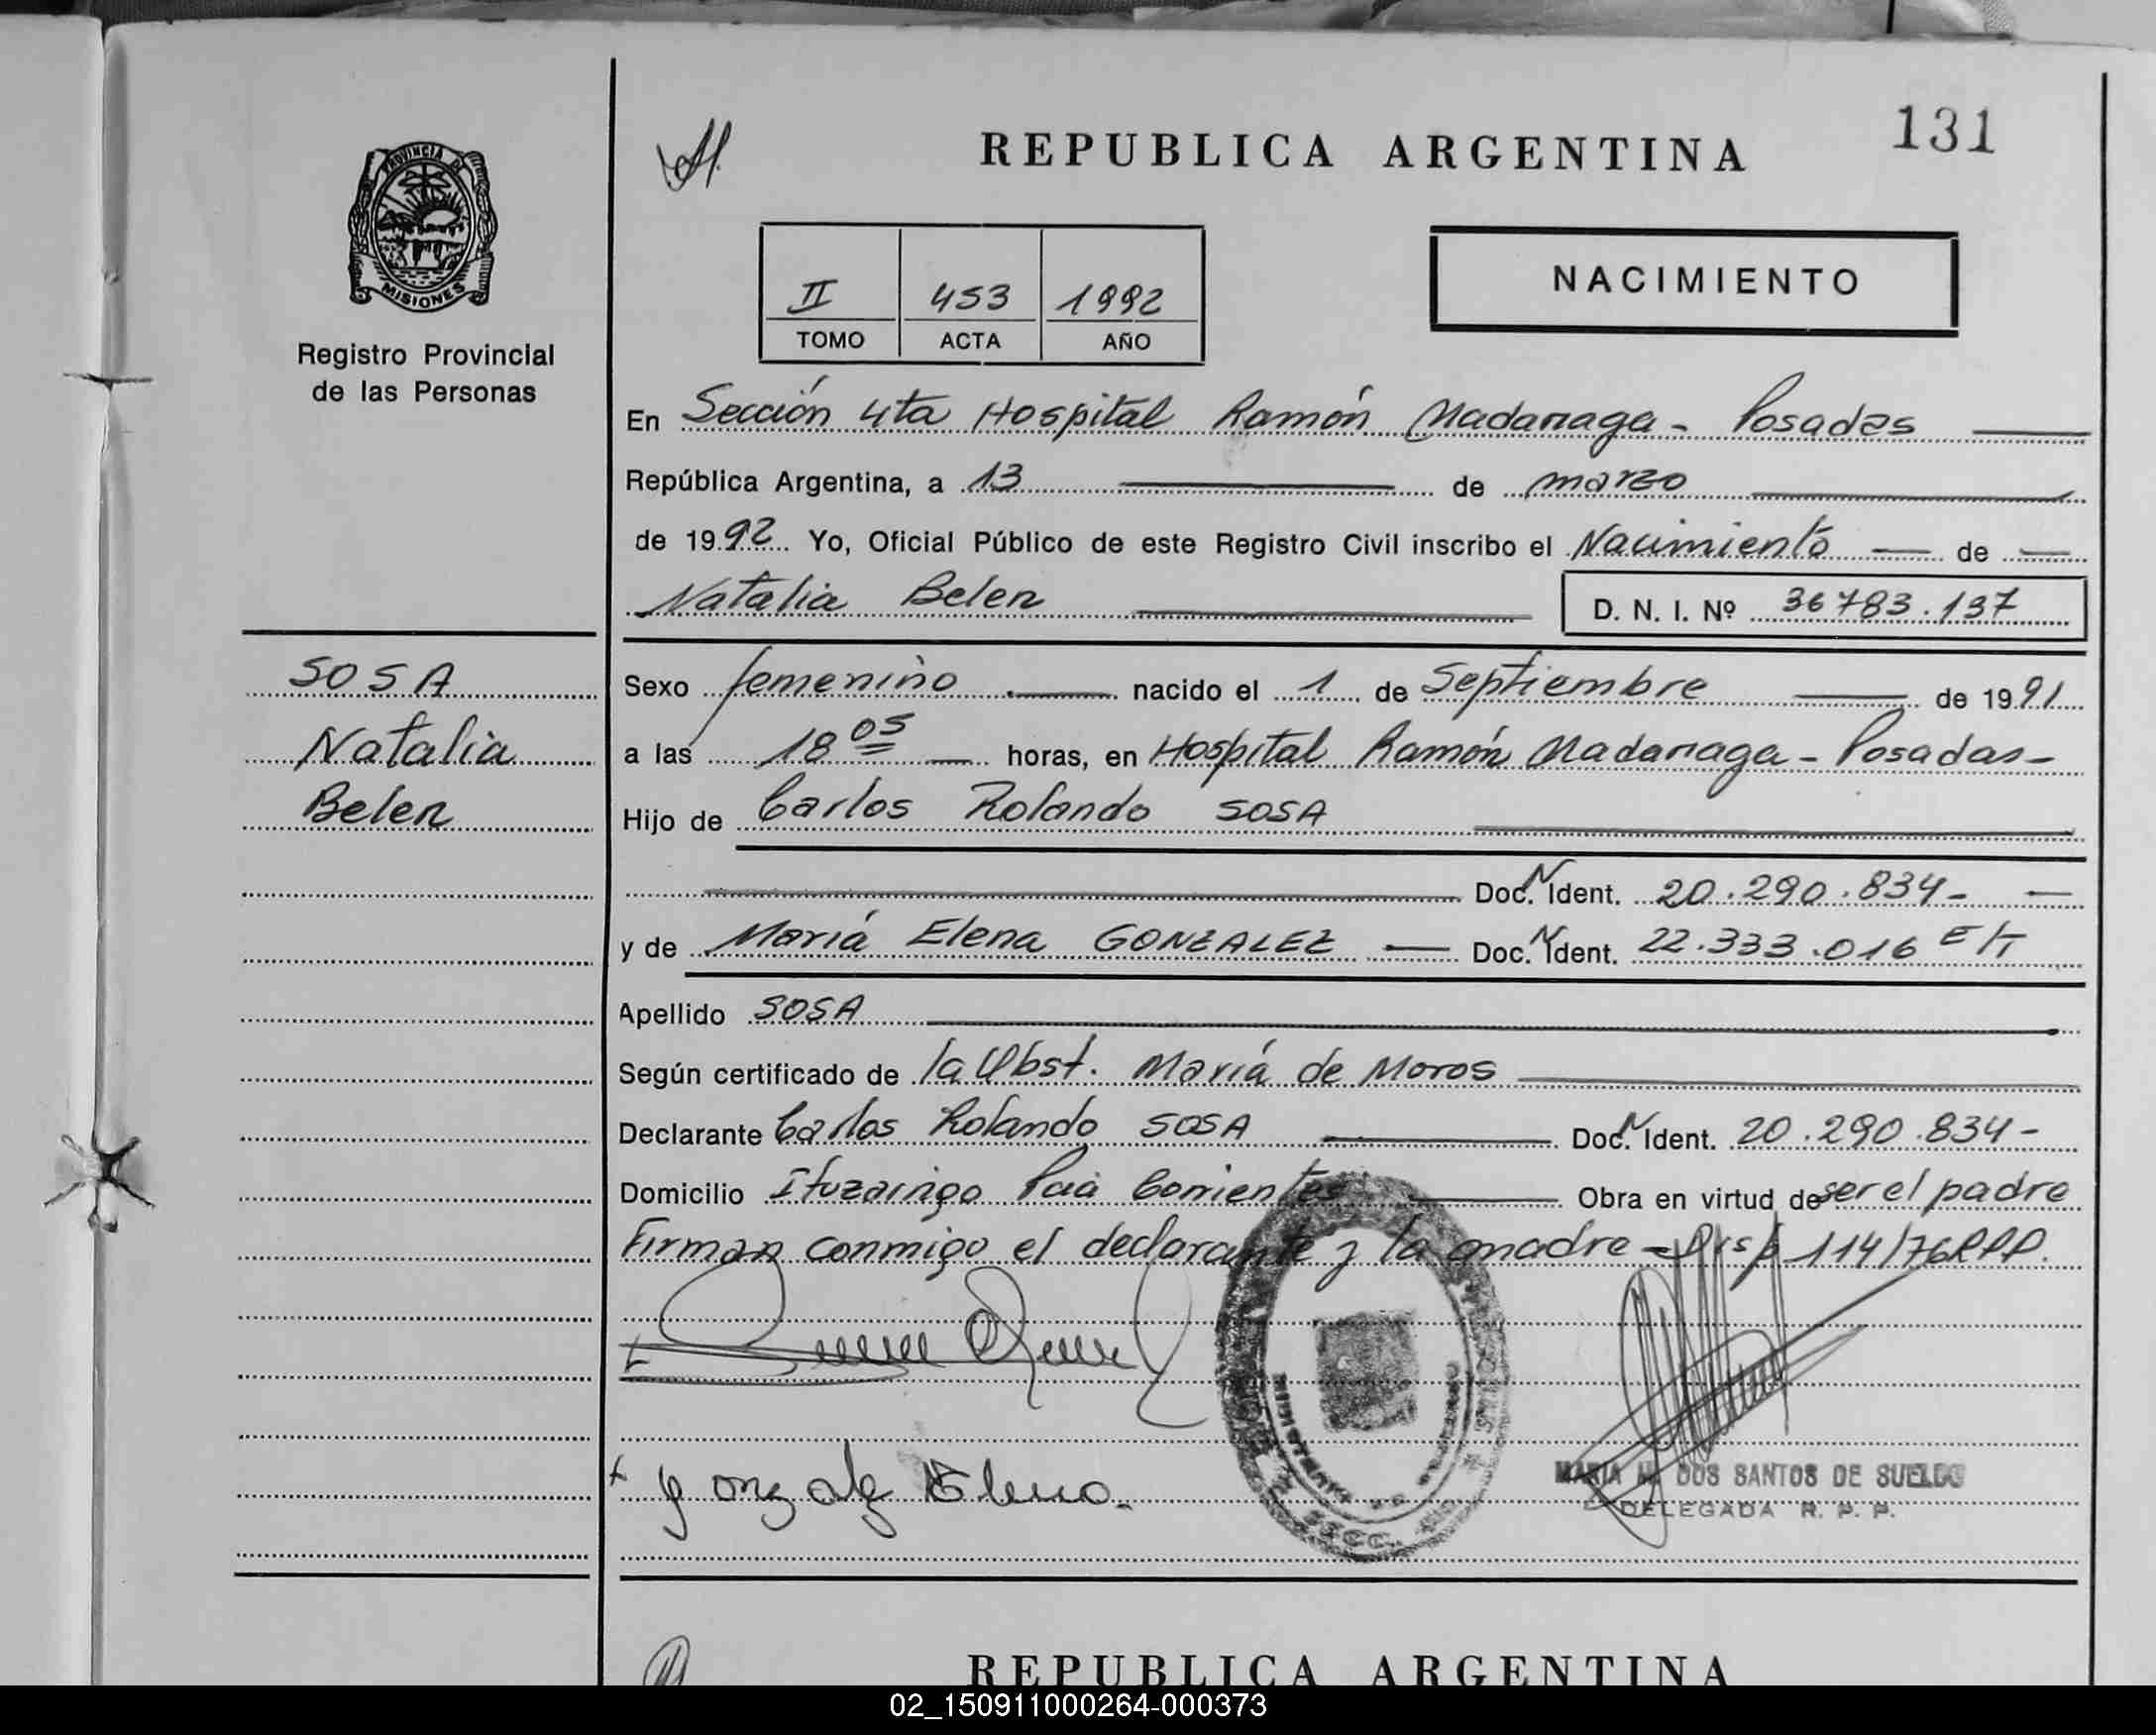 131
REPUBLICA ARGENTINA
PROVINCIA DE
MISIONES
Registro Provincial
de las Personas
II 453 1992
TOMO ACTA AÑO
NACIMIENTO
En Sección 4ta Hospital Ramón Madariaga - Posadas
República Argentina, a 13 de marzo
de 1992 Yo, Oficial Público de este Registro Civil inscribo el Nacimiento de
Natalia Belen D. N. I. Nº 36783.137
SOSA
Natalia
Belen
Sexo femenino nacido el 1 de Septiembre de 1991
a las 18 05 horas, en Hospital Ramón Madariaga - Posadas-
Hijo de Carlos Rolando SOSA
Doc. N. Ident. 20.290.834-
y de María Elena GONZALEZ Doc. N. Ident. 22.333.016 E/T
Apellido SOSA
Según certificado de la Obst. María de Moros
Declarante Carlos Rolando SOSA Doc. N. Ident. 20.290.834-
Domicilio Ituzaingo Pcia Corrientes Obra en virtud de ser el padre
Firman conmigo el declarante y la madre - Disp 114/76 RPP.
Gonzalez Elena.
MARIA M. DOS SANTOS DE SUELDO
DELEGADA R. P. P.
SECC.
REPUBLICA ARGENTINA
02_150911000264-000373